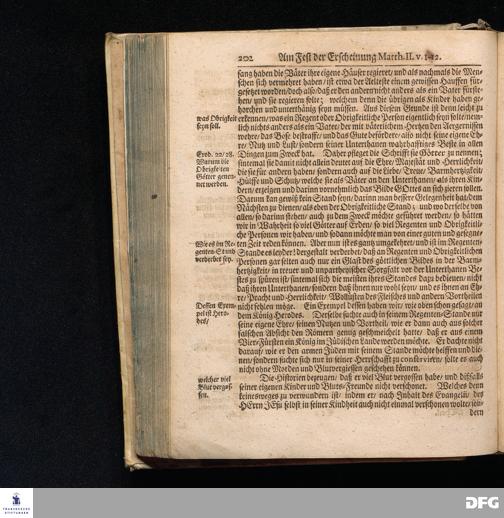 202 Am Fest der Erscheinung Matth. II. v. 1-12.
fang haben die Väter ihre eigene Häuser regieret/ und als nachmals die Men-
schen sich vermehret haben/ ist etwa der Aelteste einem gewissen Hauffen für-
gesetzet worden/ doch also/ daß er den andern nicht anders als ein Vater fürste-
hen/ und sie regieren solte; welchem denn die übrigen als Kinder haben ge-
horchen und unterthänig seyn müssen. Aus diesem Grunde ist denn leicht zu
was Obrigkeit
seyn soll.
erkennen/ was ein Regent oder Obrigkeitliche Person eigentlich seyn solte/ nem-
lich nichts anders als ein Vater/ der mit väterlichem Hertzen den Aergernissen
wehre/ das Böse bestraffe/ und das Gute befördere/ also nicht seine eigene Eh-
re/ Nutz und Lust/ sondern seiner Unterthanen wahrhafftiges Beste in allen
Exod. 22/28.
Warum die
Obrigkeiten
Götter genen-
net werden.
Dingen zum Zweck hat. Daher pfleget die Schrifft sie Götter zu nennen;
sintemal sie damit nicht allein deutet auf die Ehre/ Majestät und Herrlichkeit/
die sie für andern haben/ sondern auch auf die Liebe/ Treue/ Barmhertzigkeit/
Hülffe und Schutz/ welche sie als Väter an den Unterthanen/ als ihren Kin-
dern/ erzeigen und darinn vornehmlich das Bilde GOttes an sich zieren sollen.
Darum kan gewiß kein Stand seyn/ darinn man bessere Gelegenheit hat/ dem
Nächsten zu dienen/ als eben der Obrigkeitliche Stand; und wo derselbe von
allen/ so darinn stehen/ auch zu dem Zweck möchte geführet werden/ so hätten
wir in Wahrheit so viel Götter auf Erden/ so viel Regenten und Obrigkeitli-
che Personen wir haben/ und sodann möchte man von einer guten und gesegne-
Wie es im Re-
genten-Stand
verderbet sey.
ten Zeit reden können. Aber nun ist es gantz umgekehret/ und ist im Regenten-
Stande es leyder! dergestalt verderbet/ daß an Regenten und Obrigkeitlichen
Personen gar selten auch nur ein Glast des göttlichen Bildes in der Barm-
hertzigkeit/ in treuer und unpartheyischer Sorgfalt vor der Unterthanen Be-
stes zu spüren ist/ sintemal sich die meisten ihres Standes dazu bedienen/ nicht
daß ihren Unterthanen/ sondern daß ihnen nur wohl seyn/ und es ihnen an Eh-
re/ Pracht und Herrlichkeit/ Wollüsten des Fleisches und andern Vortheilen
Dessen Exem-
pel ist Hero-
des/
nicht fehlen möge. Ein Exempel dessen haben wir/ wie oben schon gesaget/ an
dem König Herodes. Derselbe suchte auch in seinem Regenten-Stande nur
seine eigene Ehre/ seinen Nutzen und Vortheil/ wie er dann auch aus solcher
falschen Absicht den Römern genug geschmeichelt hatte/ daß er aus einem
Vier-Fürsten ein König im Jüdischen Lande werden möchte. Er dachte nicht
darauf/ wie er den armen Jüden mit seinem Stande möchte helffen und die-
nen/ sondern suchte sich nur in seiner Herrschafft zu constabiliren/ solte es auch
nicht ohne Morden und Blutvergiessen geschehen können.
welcher viel
Blut vergos-
sen.
Die Historien bezeugen/ daß er viel Blut vergossen habe/ und dißfalls
seiner eigenen Kinder und Bluts-Freunde nicht verschonet. Welches denn
keinesweges zu verwundern ist/ indem er/ nach Inhalt des Evangelii/ des
HErrn JEsu selbst in seiner Kindheit auch nicht einmal verschonen wolte/ son-
dern
FRANCKESCHE STIFTUNGEN
DFG